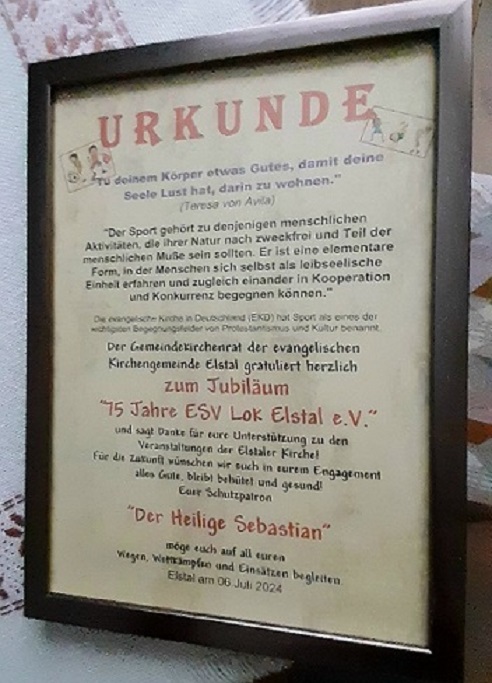 URKUNDE
"Tu deinem Körper etwas Gutes, damit deine
Seele Lust hat, darin zu wohnen."
(Teresa von Avila)
"Der Sport gehört zu denjenigen menschlichen
Aktivitäten, die ihrer Natur nach zweckfrei und Teil der
menschlichen Muße sein sollten. Er ist eine elementare
Form, in der Menschen sich selbst als leibseelische
Einheit erfahren und zugleich einander in Kooperation
und Konkurrenz begegnen können."
Die evangelische Kirche in Deutschland (EKD) hat Sport als eines der
wichtigsten Begegnungsfelder von Protestantismus und Kultur benannt.
Der Gemeindekirchenrat der evangelischen
Kirchengemeinde Elstal gratuliert herzlich
zum Jubiläum
"75 Jahre ESV Lok Elstal e.V."
und sagt Danke für eure Unterstützung zu den
Veranstaltungen der Elstaler Kirche!
Für die Zukunft wünschen wir euch in eurem Engagement
alles Gute, bleibt behütet und gesund!
Euer Schutzpatron
"Der Heilige Sebastian"
möge euch auf all euren
Wegen, Wettkämpfen und Einsätzen begleiten
Elstal am 06 Juli 2024